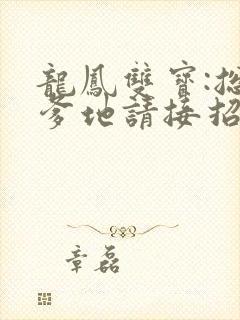 龍鳳雙寶:總
爹地請接招
章磊